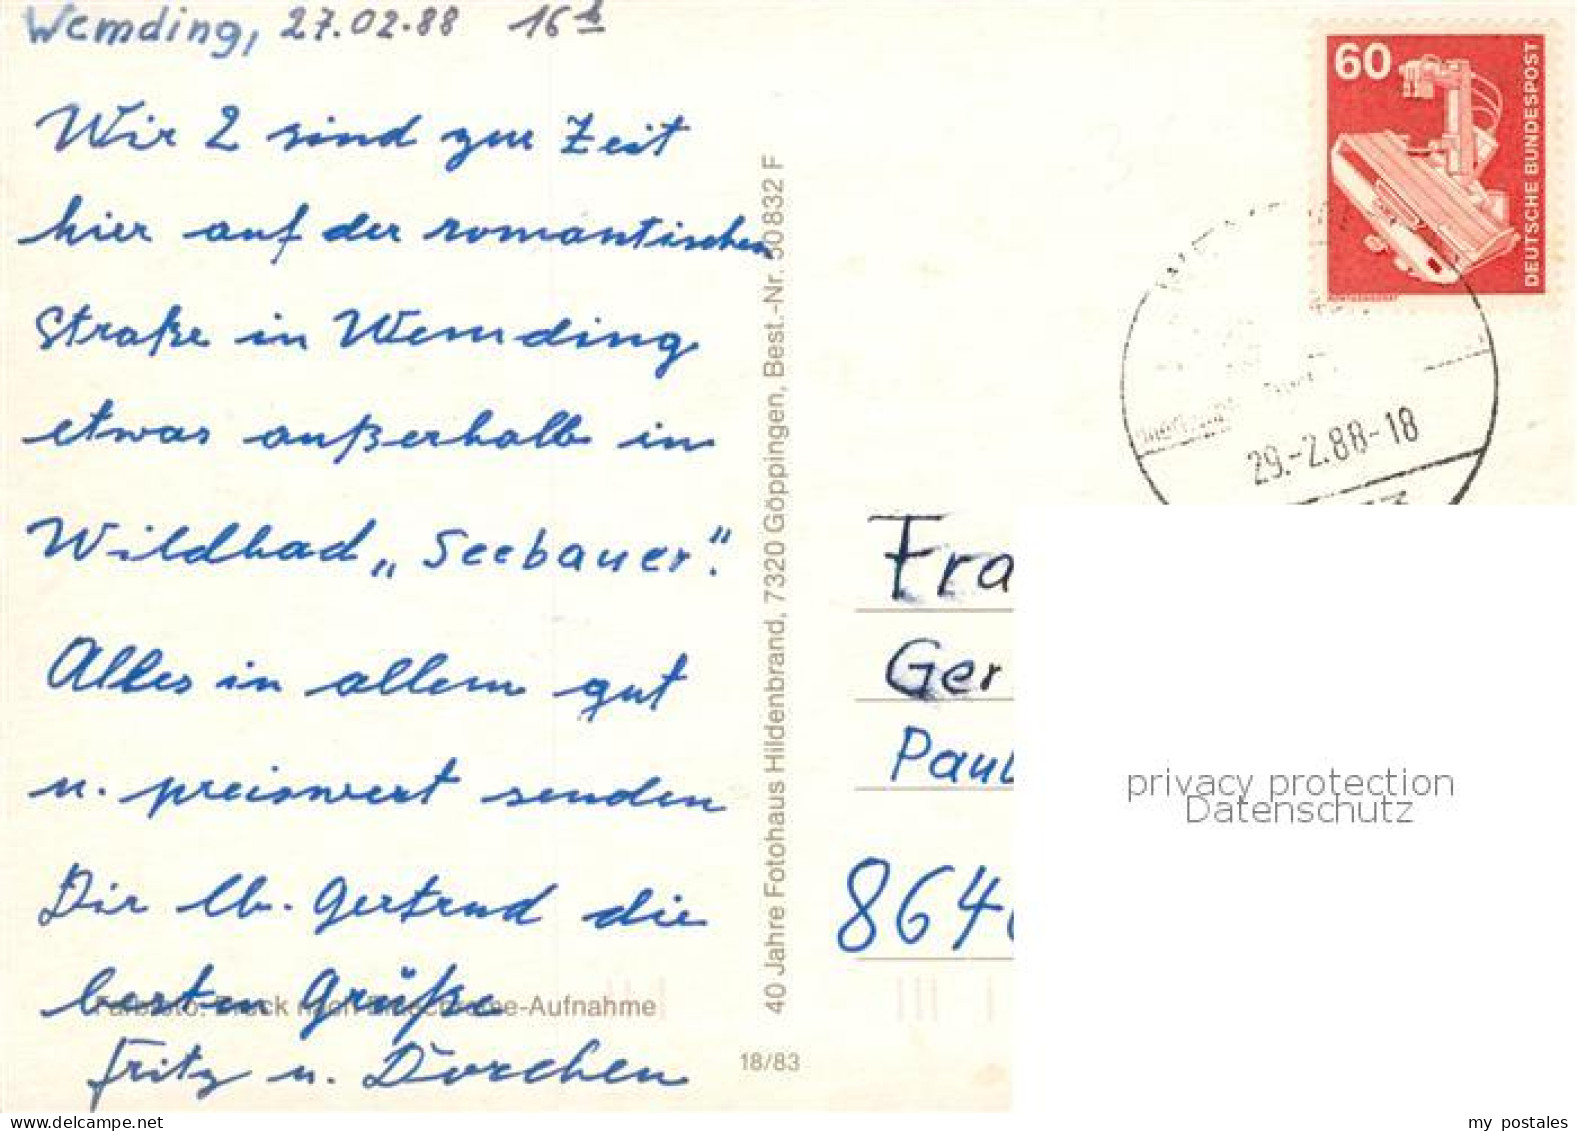 Wemding, 27.02.88 16h
Wir 2 sind zur Zeit
hier auf der romantischen
Straße in Wemding
etwas außerhalb in
Wildbad „Seebauer".
Alles in allem gut
u. preiswert senden
Dir lb. Gertrud die
besten Grüße
Fritz u. Dorchen
-Aufnahme
18/83
40 Jahre Fotohaus Hildenbrand, 7320 Göppingen, Best.-Nr. 50832 F
60
DEUTSCHE BUNDESPOST
29.-2.88-18
Fra
Ger
Paul
864
privacy protection
Datenschutz
www.delcampe.net
my postales